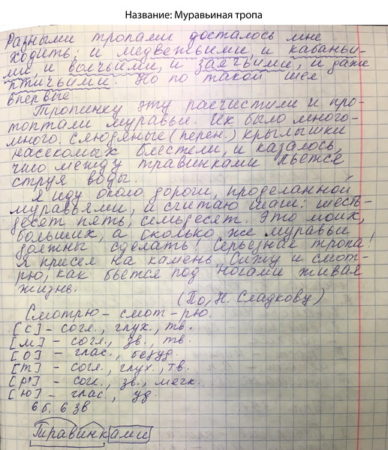 Название: Муравьиная тропа
Разными тропами досталось мне
ходить: и медвежьими, и кабаньи-
ми, и волчьими, и заячьими, и даже
птичьими. Но по такой шел
впервые.
Тропинку эту расчистили и про-
топтали муравьи. Их было много-
много. Слюдяные (перен.) крылышки
насекомых блестели, и казалось,
что между травинками льётся
струя воды.
Я иду около дороги, проделанной
муравьями, и считаю шаги: шесть-
десят пять, семьдесят. Это моих,
больших, а сколько же муравьи
должны сделать! Серьезная тропа!
Я присел на камень. Сижу и смот-
рю, как бьется под ногами живая
жизнь.
(По Н. Сладкову)
Смотрю - смот-рю.
[с] - согл., глух., тв.
[м] - согл., зв., тв.
[о] - глас., безуд
[т] - согл., глух., тв.
[р'] - согл., зв., мягк.
[ю] - глас., уд
6 б, 6 зв
Травинками